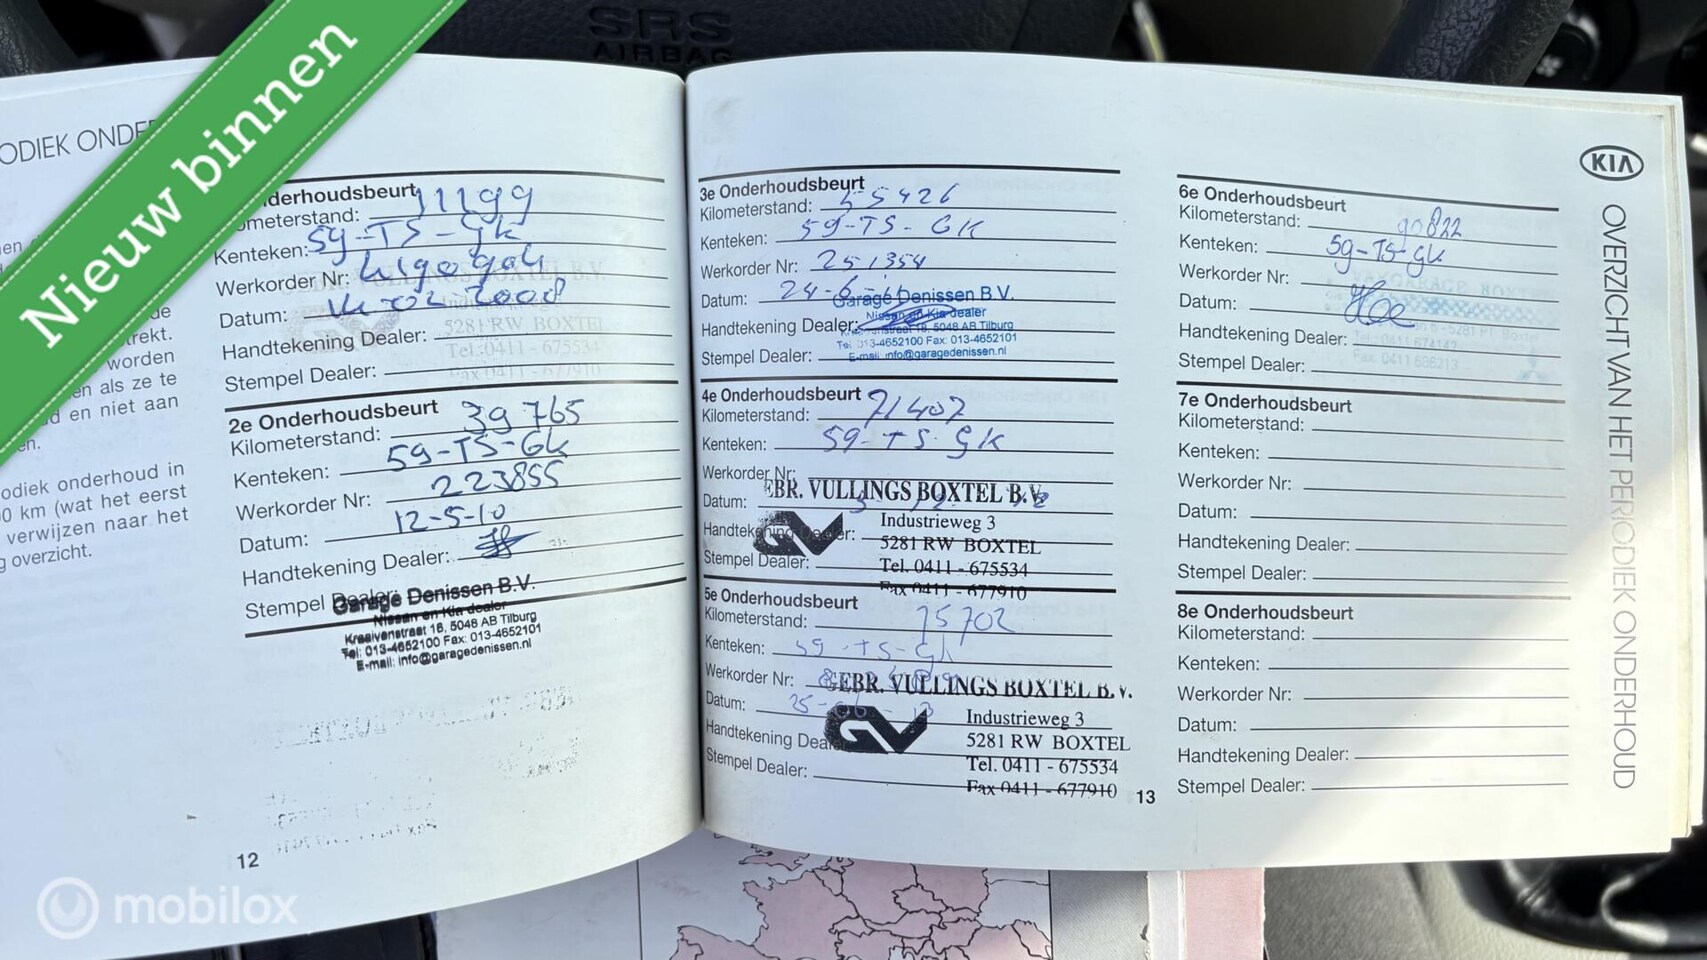 SRS
AIRBAG
Nieuw binnen
worden
en als ze te
en niet aan
odiek onderhoud in
0 km (wat het eerst
verwijzen naar het
overzicht.
derhoudsbeurt
ometerstand: 11199
Kenteken: 59-TS-GK
Werkorder Nr:
Datum: 2008
Handtekening Dealer:
Stempel Dealer:
5281 RW BOXTEL
Tel.:0411 - 675534
Fax 0411 - 677910
2e Onderhoudsbeurt
Kilometerstand: 39765
Kenteken: 59-TS-GK
Werkorder Nr: 223855
Datum: 12-5-10
Handtekening Dealer:
Stempel Dealer:
Garage Denissen B.V.
Nissan en Kia dealer
Kraaivenstraat 18, 5048 AB Tilburg
Tel: 013-4652100 Fax: 013-4652101
E-mail: info@garagedenissen.nl
12
3e Onderhoudsbeurt
Kilometerstand: 55426
Kenteken: 59-TS-GK
Werkorder Nr: 251354
Datum: 24-6-11
Garage Denissen B.V.
Nissan en Kia dealer
Handtekening Dealer:
18, 5048 AB Tilburg
Tel: 013-4652100 Fax: 013-4652101
Stempel Dealer:
E-mail: info@garagedenissen.nl
4e Onderhoudsbeurt
Kilometerstand: 71407
Kenteken: 59-TS-GK
Werkorder Nr:
GEBR. VULLINGS BOXTEL B.V.
Datum:
Industrieweg 3
Handtekening Dealer:
5281 RW BOXTEL
Stempel Dealer:
Tel. 0411 - 675534
Fax 0411 - 677910
5e Onderhoudsbeurt
Kilometerstand: 75702
Kenteken: 59-TS-GK
Werkorder Nr:
GEBR. VULLINGS BOXTEL B.V.
Datum: 25-06-13
Industrieweg 3
Handtekening Dealer:
5281 RW BOXTEL
Tel. 0411 - 675534
Stempel Dealer:
Fax 0411 - 677910
13
KIA
OVERZICHT VAN HET PERIODIEK ONDERHOUD
6e Onderhoudsbeurt
Kilometerstand: 90822
Kenteken: 59-TS-GK
Werkorder Nr:
Datum:
Handtekening Dealer:
Stempel Dealer:
7e Onderhoudsbeurt
Kilometerstand:
Kenteken:
Werkorder Nr:
Datum:
Handtekening Dealer:
Stempel Dealer:
8e Onderhoudsbeurt
Kilometerstand:
Kenteken:
Werkorder Nr:
Datum:
Handtekening Dealer:
Stempel Dealer:
mobilox